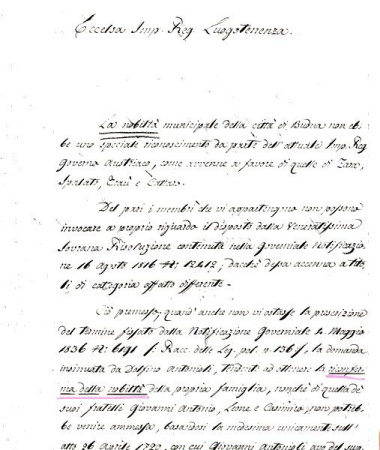 Eccelsa Imp. Reg. Luogotenenza.
La nobiltà municipale della città di Budua non eb-
be uno speciale riconoscimento da parte dell'attuale Imp. Reg.
Governo Austriaco, come avvenne a favore di quelle di Zara,
Spalato, Traù e Cattaro.
Del pari i membri che vi appartengono non possono
invocare a proprio riguardo il disposto dalla Veneratissima
Sovrana Risoluzione contenuta nella Governiale Notificazio-
ne 16 agosto 1816 N: 12412, dacchè dessa accenna a tito-
li di categoria affatto differente.-
Ciò premesso, quand'anche non vi ostasse la prescrizione
del termine fissato dalla Notificazione Governiale 4. Maggio
1836 N: 6191 f: Racc. delle Leg. pol. n 136/, la domanda
insinuata da Antonioli, tendente ad ottenere la riconfer-
ma della nobiltà della propria famiglia, nonchè di quella de'
suoi fratelli Giovanni Antonio, Leone e Casimiro, non potreb-
be venire ammessa, basandosi la medesima unicamente sull'
atto 26 Aprile 1720, con cui Giovanni Antonioli avo del sup-